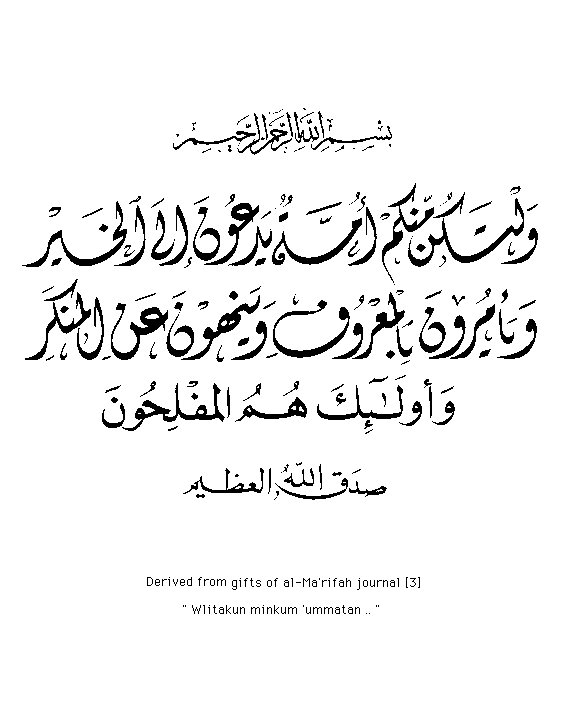 بِسْمِ اللهِ الرَّحْمنِ الرَّحِيمِ
وَلْتَكُن مِّنكُمْ أُمَّةٌ يَدْعُونَ إِلَى الْخَيْرِ
وَيَأْمُرُونَ بِالْمَعْرُوفِ وَيَنْهَوْنَ عَنِ الْمُنْكَرِ
وَأُولَٰئِكَ هُمُ الْمُفْلِحُونَ
صَدَقَ اللَّهُ العَظِيم
Derived from gifts of al-Ma'rifah journal [3]
" Wlitakun minkum 'ummatan .. "